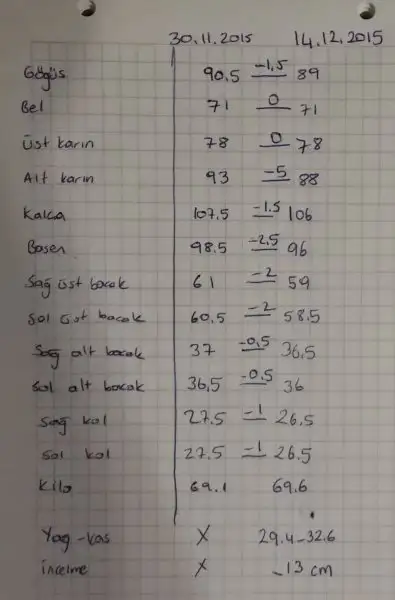 30.11.2015 14.12.2015
Göğüs 90.5 -1,5 89
Bel 71 0 71
Üst karın 78 0 78
Alt karın 93 -5 88
Kalça 107.5 -1.5 106
Basen 98.5 -2,5 96
Sağ üst bacak 61 -2 59
Sol üst bacak 60,5 -2 58.5
Sağ alt bacak 37 -0,5 36,5
Sol alt bacak 36,5 -0,5 36
Sağ kol 27.5 -1 26.5
Sol kol 27.5 -1 26.5
Kilo 69.1 69.6
Yağ-kas X 29.4-32.6
İncelme X -13 cm